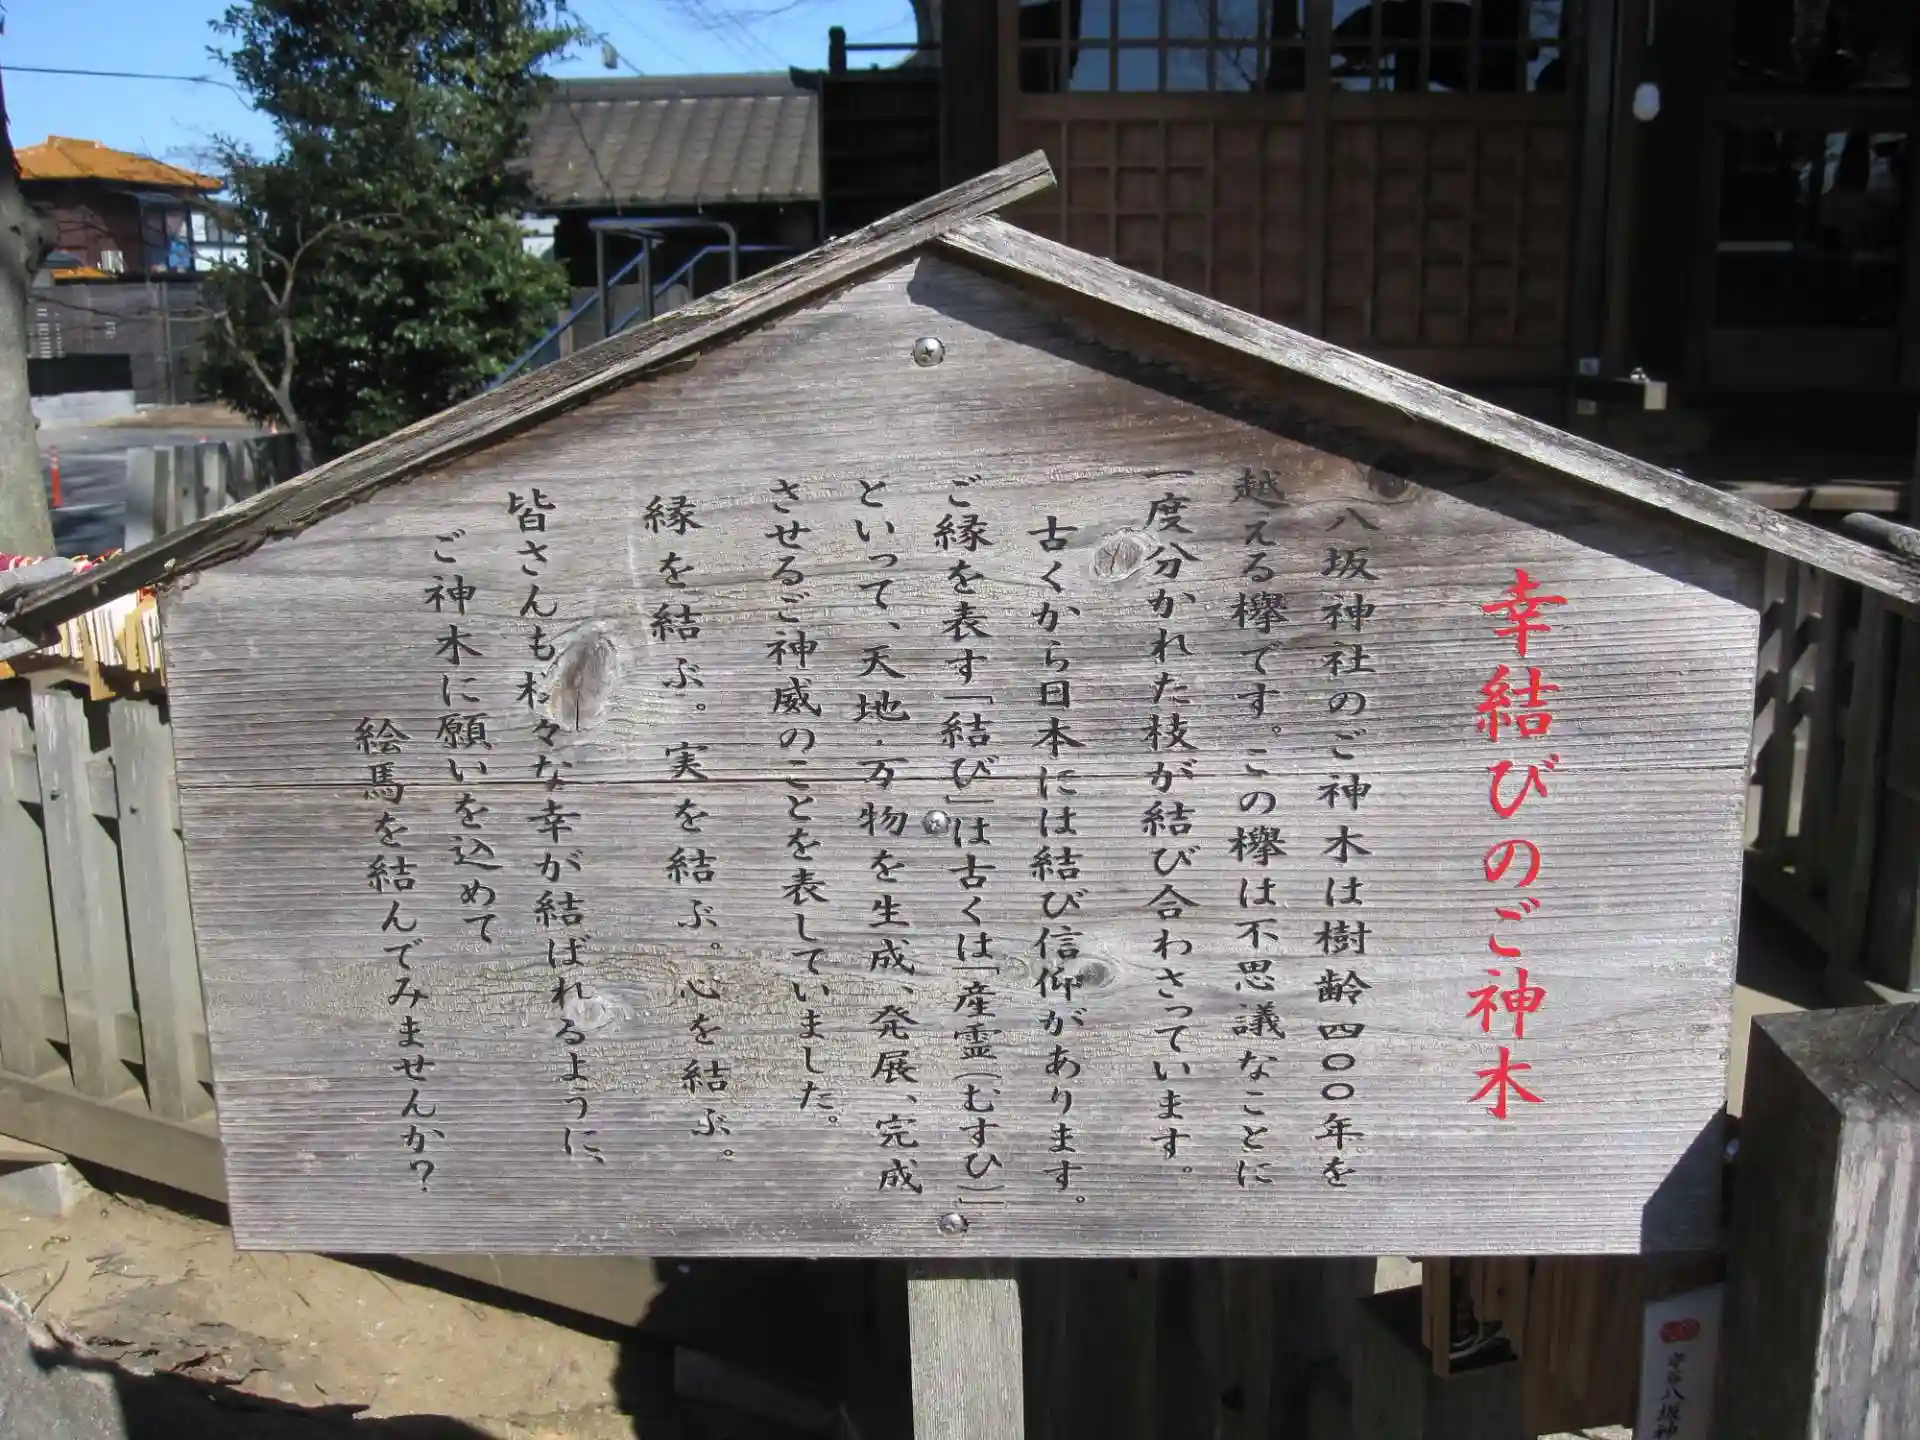 幸結びのご神木
八坂神社のご神木は樹齢四〇〇年を
越える欅です。この欅は不思議なことに
一度分かれた枝が結び合わさっています。
古くから日本には結び信仰があります。
ご縁を表す「結び」は古くは「産霊(むすひ)」
といって、天地・万物を生成、発展、完成
させるご神威のことを表していました。
縁を結ぶ。実を結ぶ。心を結ぶ。
皆さんも様々な幸が結ばれるように、
ご神木に願いを込めて
絵馬を結んでみませんか?
守谷八坂神